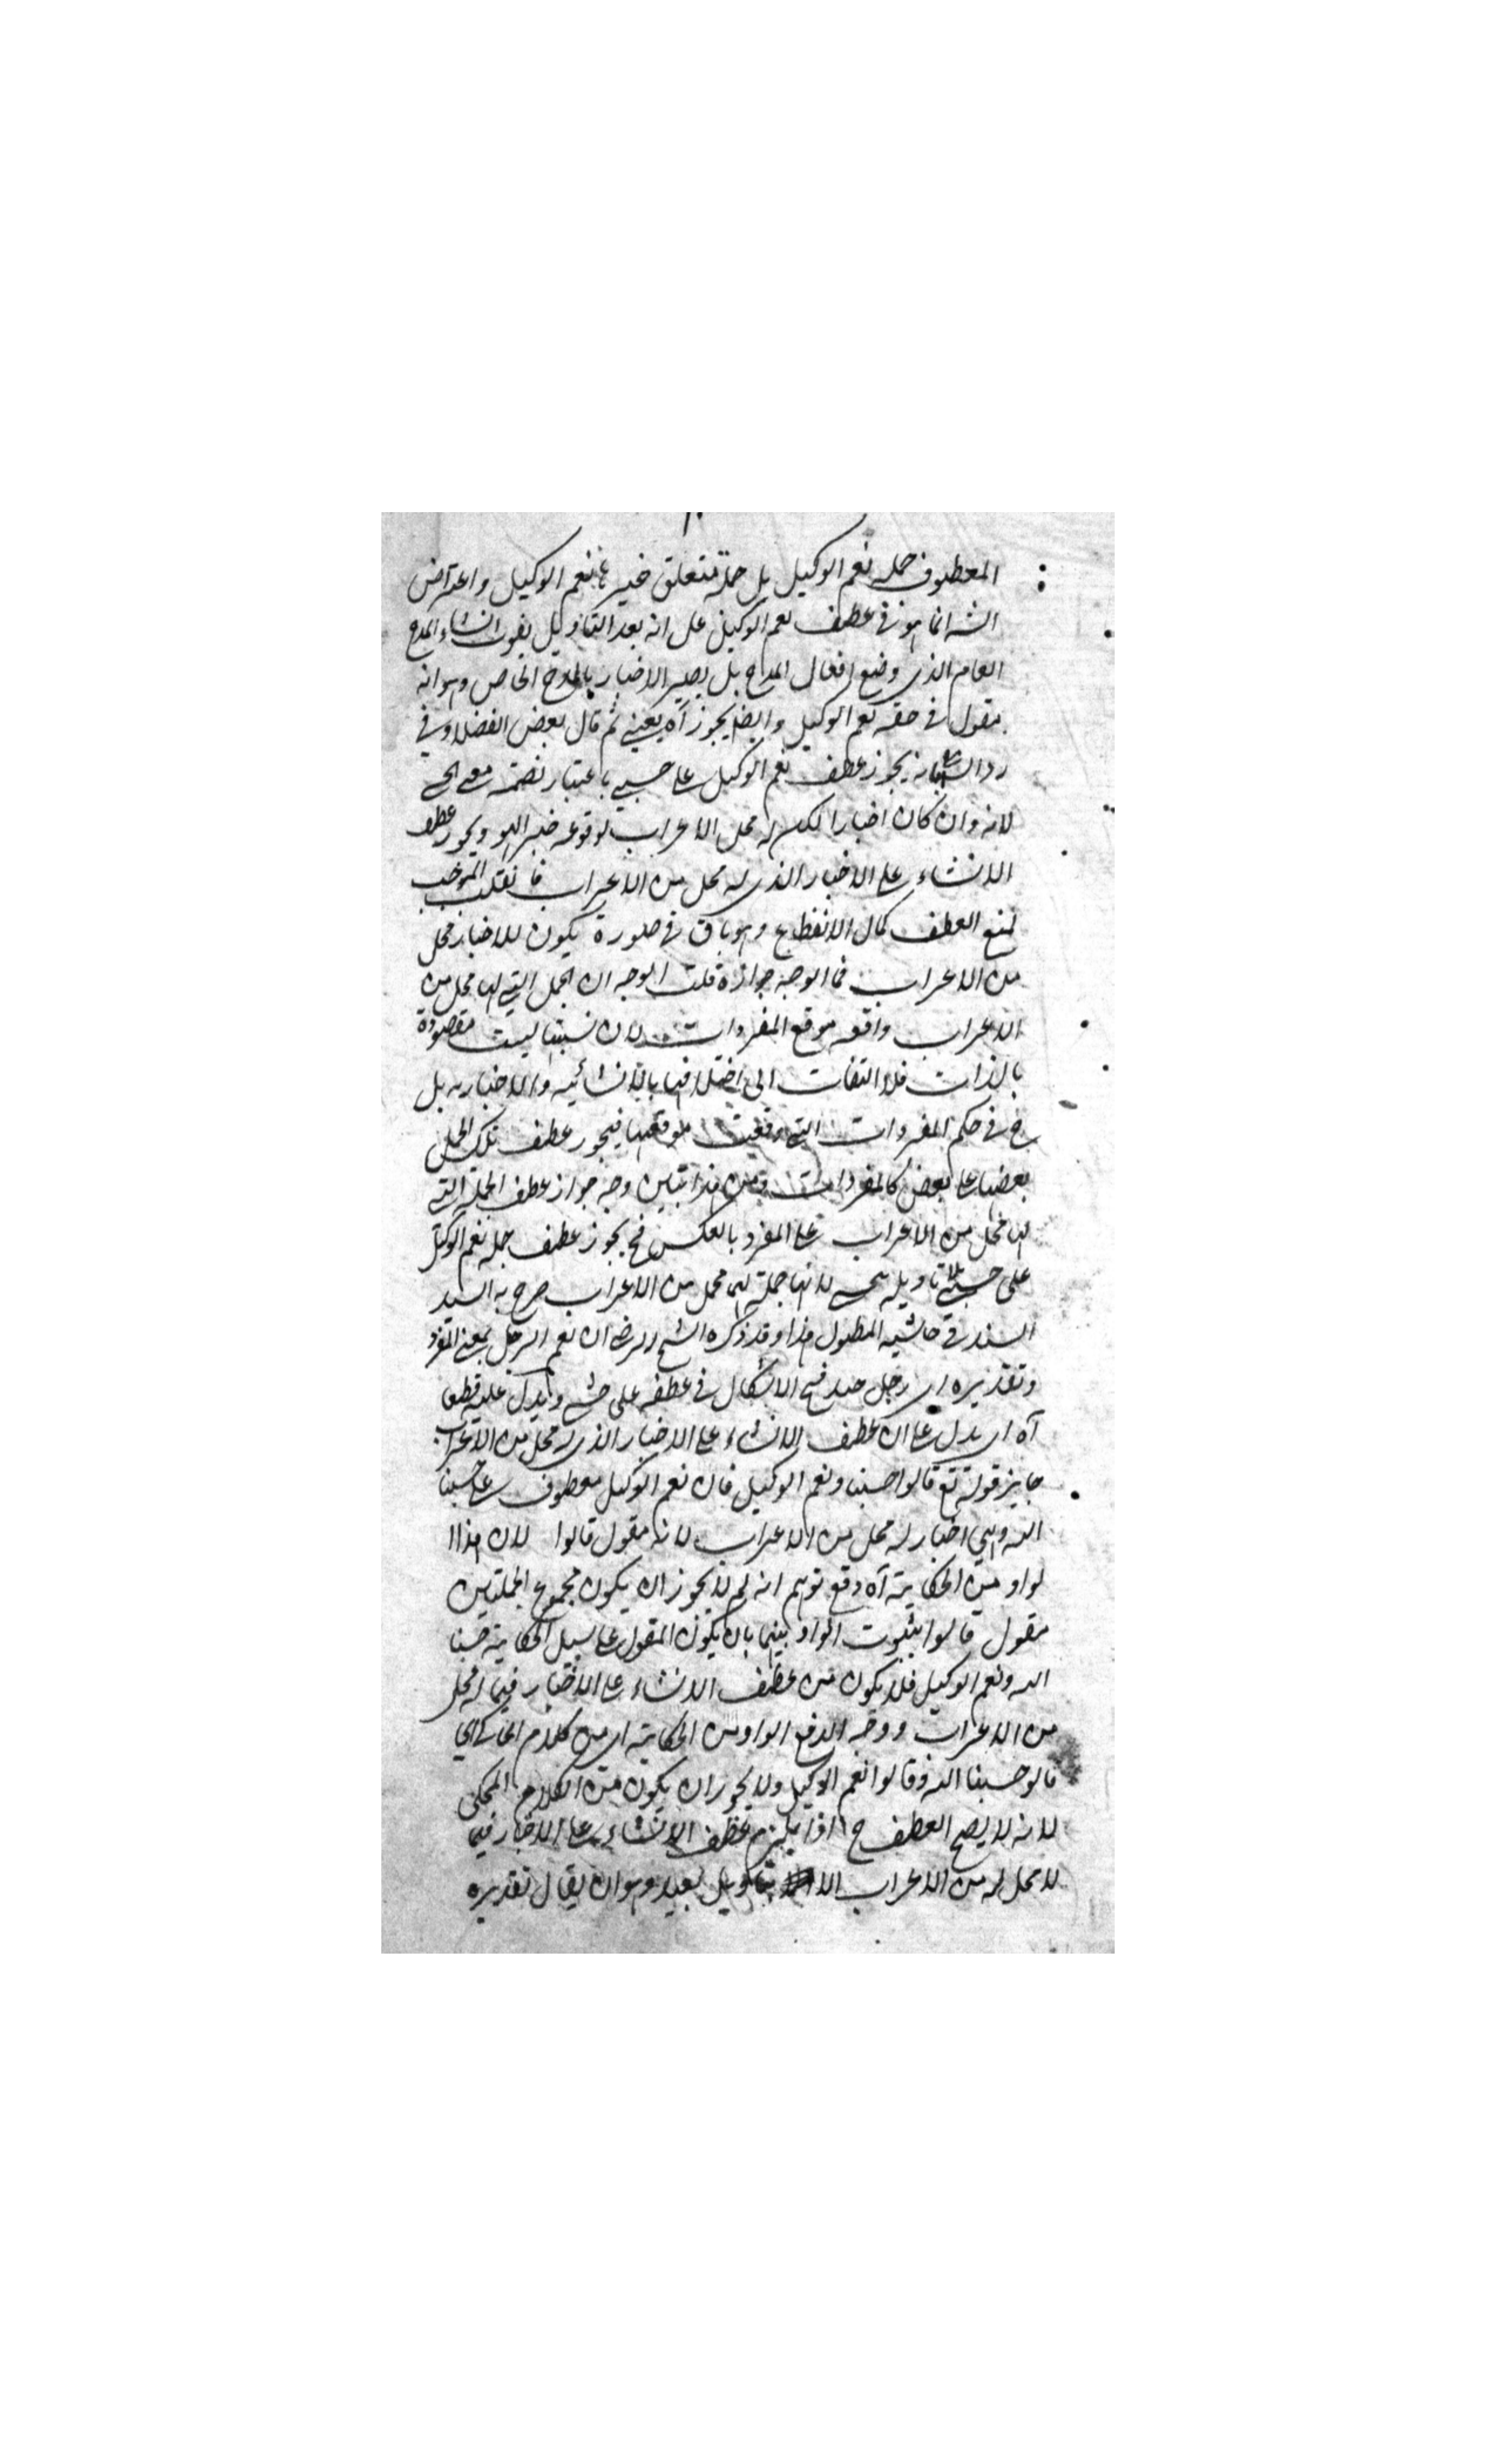 المعطوف جملة نعم الوكيل بل جملة متعلق خبرها نعم الوكيل واعتراض
الشه انما هو في عطف نعم الوكيل على انه بعد التاويل يفوت انشاء المدح
العام الذي وضع افعال المدح بل يصير الاخبار بالمدح الخاص وهو انه
مقول في حقه نعم الوكيل وايضا يجوز آه يعني ثم قال بعض الفضلاء في
رد الش بانه يجوز عطف نعم الوكيل على حسبي باعتبار تضمنه معنى يحسبني
لانه وان كان اخبارا لكن له محل الاعراب لوقوعه خبر الهو ويجوز عطف
الانشاء على الاخبار الذي له محل من الاعراب فان قلت الموجب
لمنع العطف كمال الانقطاع وهو باق في صورة يكون للاخبار محل
من الاعراب فما الوجه جوازه قلت الوجه ان الجمل التي لها محل من
الاعراب واقعه موقع المفردات لان نسبتها ليست مقصودة
بالذات فلا التفات الى اختلافها بالانشائيه والاخباريه بل
ح في حكم المفردات التي وقعت موقعها فيجوز عطف تلك الجمل
بعضها على بعض كالمفردات ومن هذا تبين وجه جواز عطف الجملة التي
لها محل من الاعراب على المفرد بالعكس فح يجوز عطف جملة نعم الوكيل
على حسبي بلا تاويله لانها جملة لها محل من الاعراب صرح به السيد
السند في حاشيه المطول هذا وقد ذكره الشيخ الرضى ان نعم الرجل بمعنى المفرد
وتقديره اى رجل جيد فح الاشكال في عطفه على حسبي ويدل عليه قطعا
آه اى يدل على ان عطف الانشاء على الاخبار الذي له محل من الاعراب
جايز قوله تع قالوا حسبنا ونعم الوكيل فان نعم الوكيل معطوف على حسبنا
الله وهي اخبار له محل من الاعراب لانه مقول قالوا لان هذا ا
لواو من الحكاية آه دفع توهم انه لم لا يجوز ان يكون مجموع الجملتين
مقول قالوا بثبوت الواو بينهما بان يكون المقول على سبيل الحكاية حسبنا
الله ونعم الوكيل فلا يكون من عطف الانشاء على الاخبار فيما له محل
من الاعراب ووجه الدفع الواو من الحكاية اى من كلام الحاكي اي
قالو حسبنا الله وقالوا نعم الوكيل ولا يجوز ان يكون من الكلام المحكي
لانه لا يصح العطف ح اذا يلزم عطف الانشاء على الاخبار فيما
لا محل له من الاعراب الا بتاويل بعيد وهو ان يقال تقديره